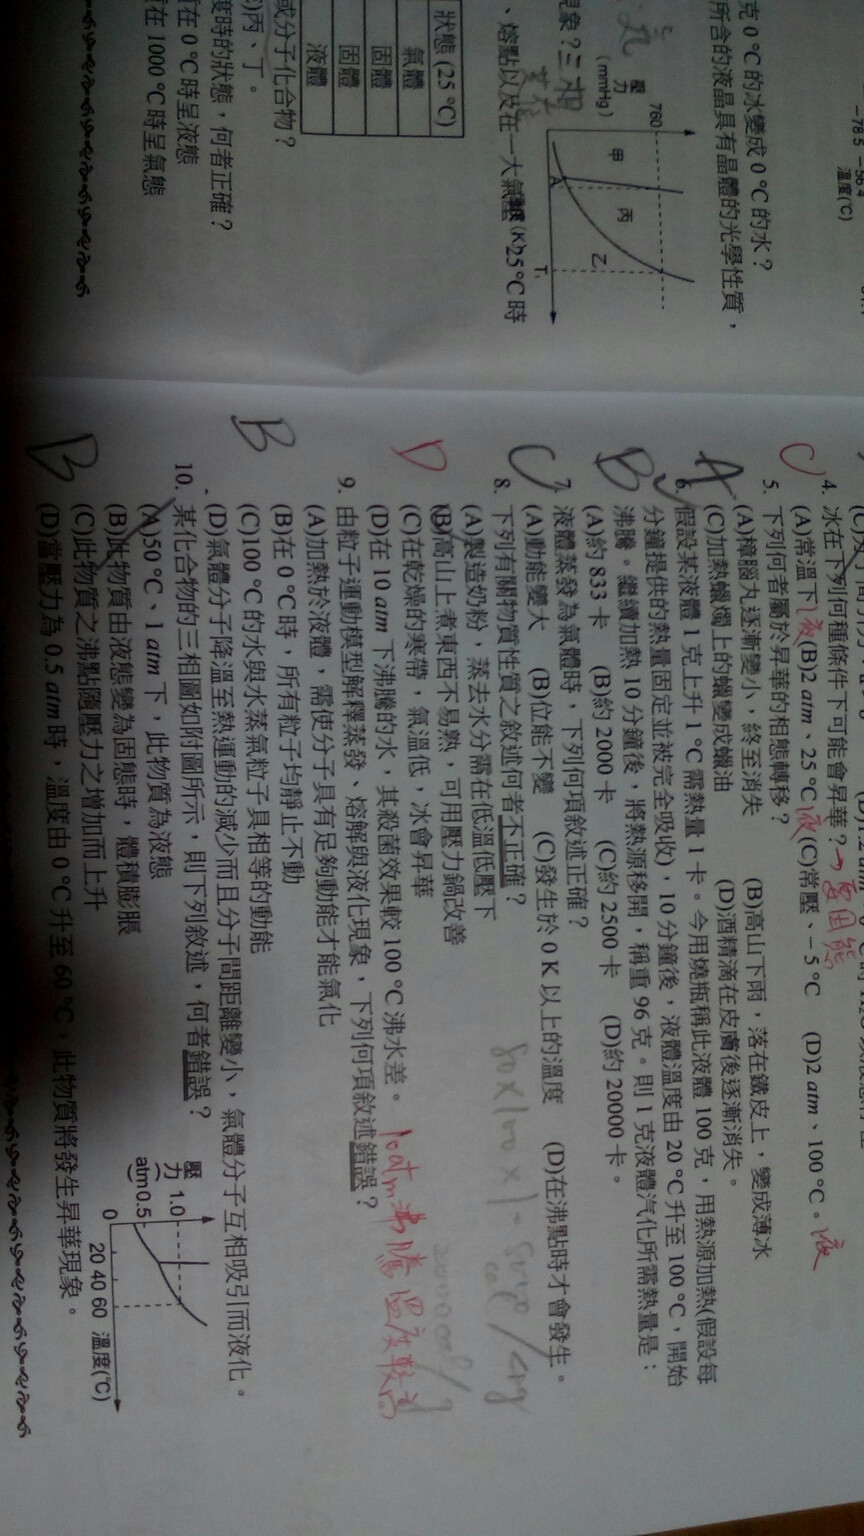 克 0 °C 的冰變成 0 °C 的水?
所含的液晶具有晶體的光學性質,
現象?三相
、熔點以及在一大氣壓、25 °C 時
狀態 (25 °C)
氣體
固體
固體
液體
或分子化合物?
丙、丁。
度時的狀態,何者正確?
在 0 °C 時呈液態
在 1000 °C 時呈氣態
-78.5 -56.4
溫度(°C)
壓力
(mmHg)
760
甲
丙
乙
A
T₁
(K)
C
4. 冰在下列何種條件下可能會昇華?→要固態
(A)常溫下 液 (B)2 atm、25 °C 液 (C)常壓、-5 °C (D)2 atm、100 °C。液
5. 下列何者屬於昇華的相態轉移?
A
(A)樟腦丸逐漸變小,終至消失 (B)高山下雨,落在鐵皮上,變成薄冰
(C)加熱蠟燭上的蠟變成蠟油 (D)酒精滴在皮膚後逐漸消失。
B
6. 假設某液體 1 克上升 1 °C 需熱量 1 卡。今用燒瓶稱此液體 100 克,用熱源加熱(假設每
分鐘提供的熱量固定並被完全吸收),10 分鐘後,液體溫度由 20 °C 升至 100 °C,開始
沸騰。繼續加熱 10 分鐘後,將熱源移開,稱重 96 克。則 1 克液體汽化所需熱量是:
(A)約 833 卡 (B)約 2000 卡 (C)約 2500 卡 (D)約 20000 卡。
C
7. 液體蒸發為氣體時,下列何項敘述正確?
(A)動能變大 (B)位能不變 (C)發生於 0 K 以上的溫度 (D)在沸點時才會發生。
80×100×1=8000
cal
D
8. 下列有關物質性質之敘述何者不正確?
(A)製造奶粉,蒸去水分需在低溫低壓下
(B)高山上煮東西不易熟,可用壓力鍋改善
(C)在乾燥的寒帶,氣溫低,冰會昇華
(D)在 10 atm 下沸騰的水,其殺菌效果較 100 °C 沸水差。10atm沸騰溫度較高
9. 由粒子運動模型解釋蒸發、熔解與液化現象,下列何項敘述錯誤?
B
(A)加熱於液體,需使分子具有足夠動能才能氣化
(B)在 0 °C 時,所有粒子均靜止不動
(C)100 °C 的水與水蒸氣粒子具相等的動能
(D)氣體分子降溫至熱運動的減少而且分子間距離變小,氣體分子互相吸引而液化。
10. 某化合物的三相圖如附圖所示,則下列敘述,何者錯誤?
B
(A)50 °C、1 atm 下,此物質為液態
(B)此物質由液態變為固態時,體積膨脹
(C)此物質之沸點隨壓力之增加而上升
(D)當壓力為 0.5 atm 時,溫度由 0 °C 升至 60 °C,此物質將發生昇華現象。
壓力
(atm)
1.0
0.5
0
20 40 60 溫度(°C)